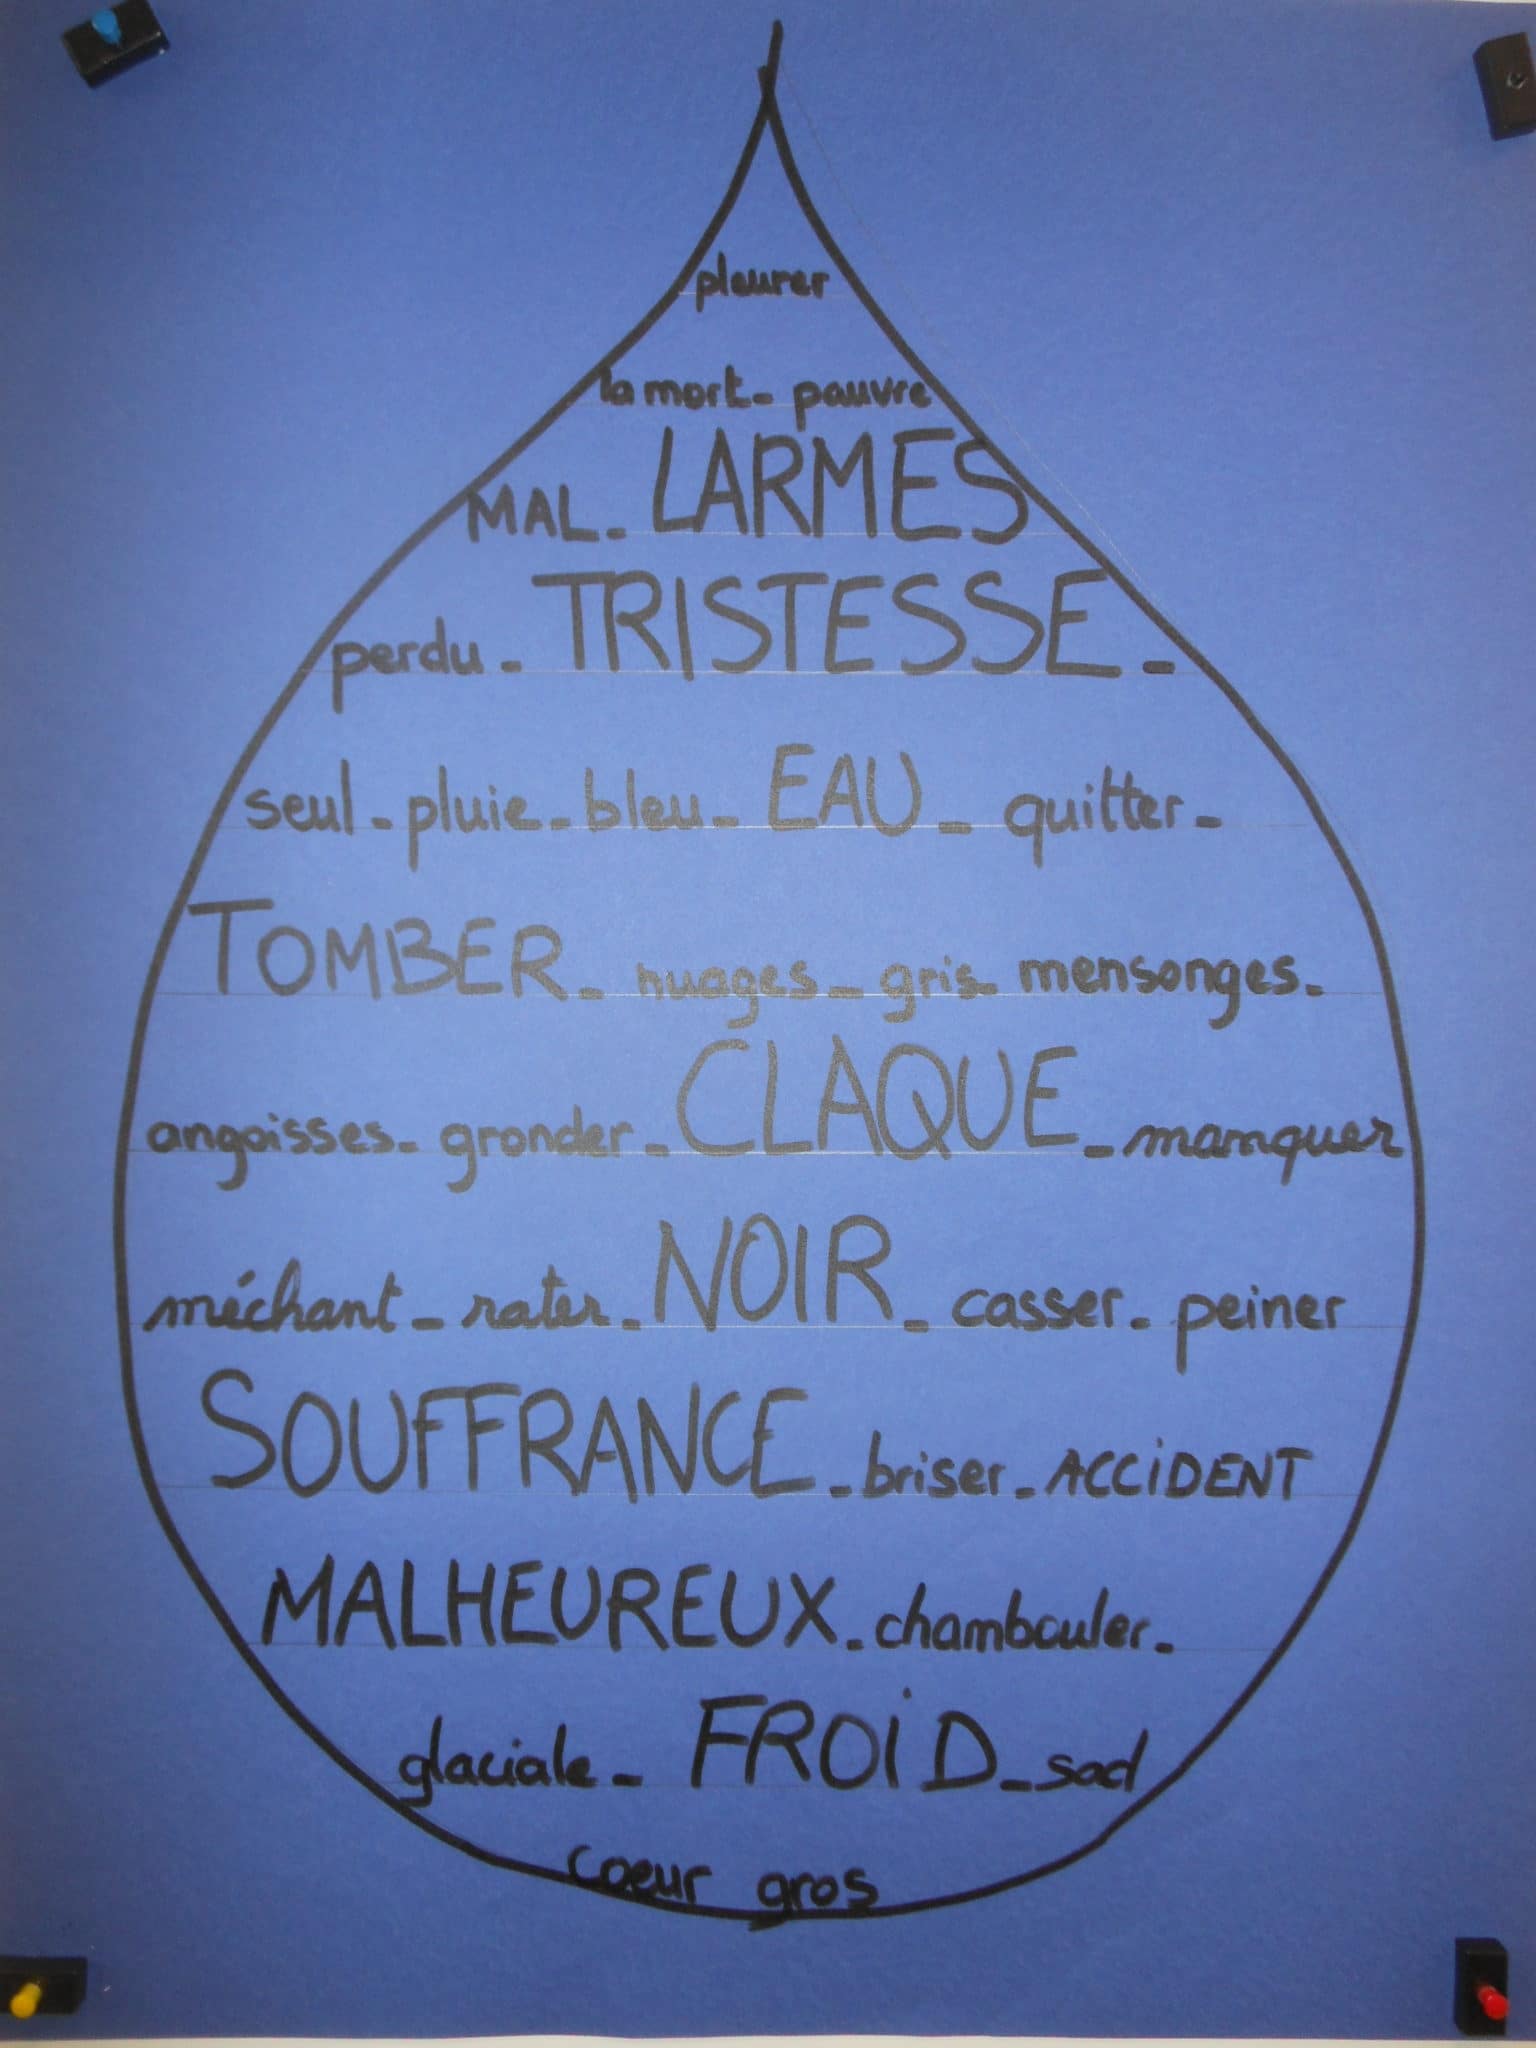 pleurer
la mort - pauvre
MAL - LARMES
perdu - TRISTESSE -
seul - pluie - bleu - EAU - quitter -
TOMBER - nuages - gris - mensonges -
angoisses - gronder - CLAQUE - manquer
méchant - rater - NOIR - casser - peiner
SOUFFRANCE - briser - ACCiDENT
MALHEUREUX - chambouler -
glaciale - FROiD - sad
coeur gros